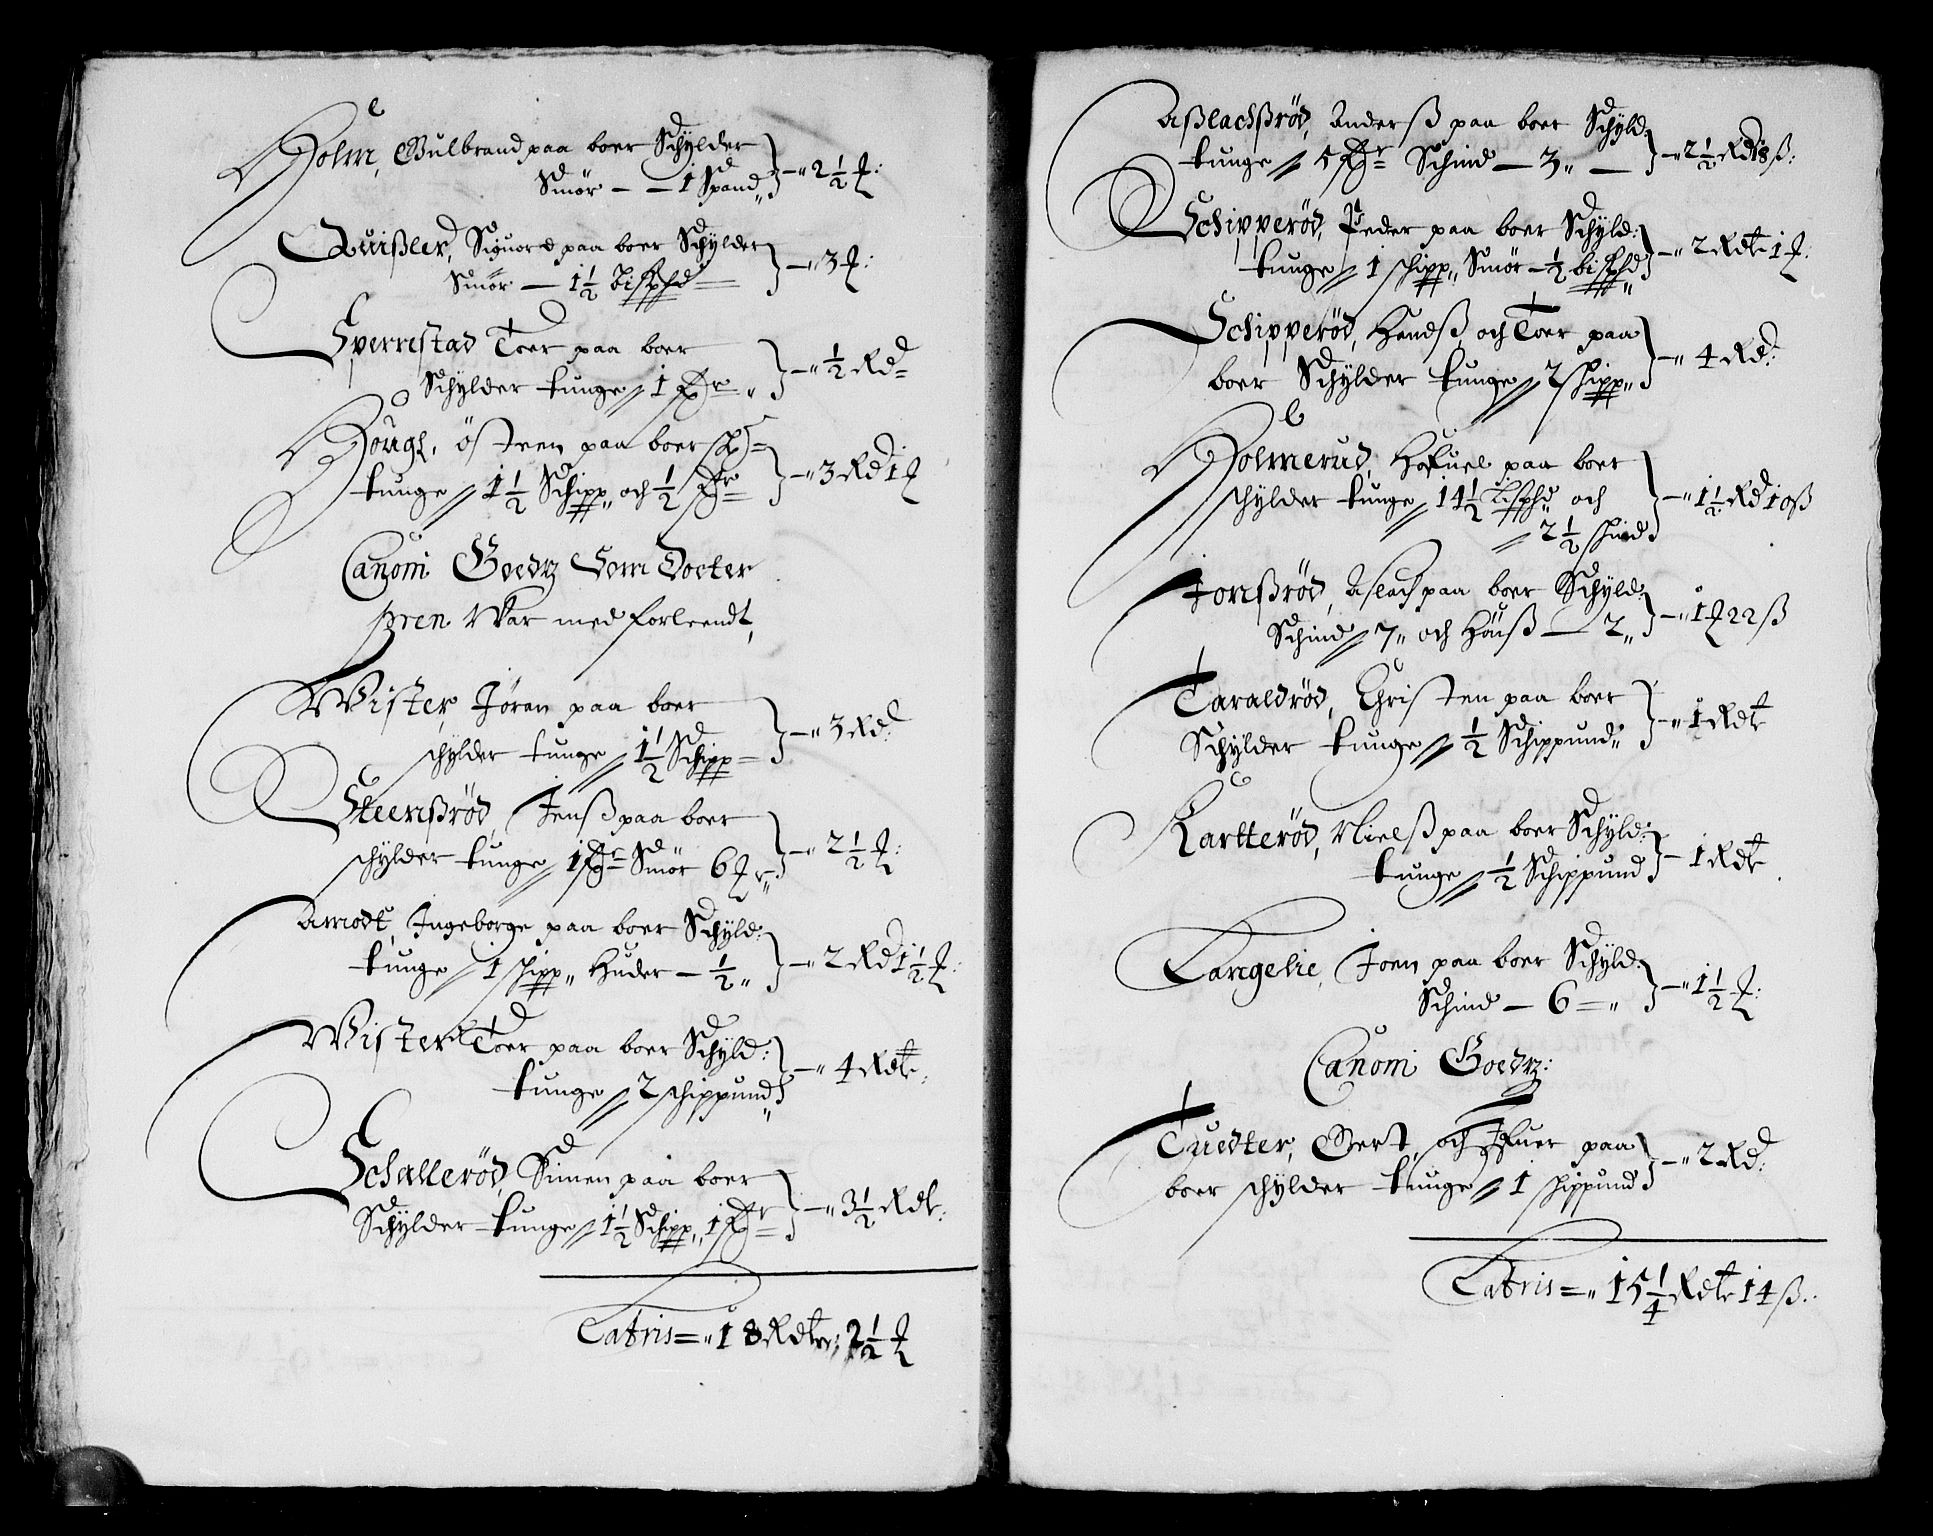 Holm, Gulbrand paa boer Schylder
Smør — — 1 Spand„ } —„ 2½ ℔:
Quißler, Siguord paa boer Schylder
Smør — 1½ Bisphd } —„ 3 ℔:
Sperrestad Toer paa boer
Schylder tunge 1 Fr „ } —„ ½ Rd
Hough, östeen paa boer sk:
tunge 1½ Schipp„ och ½ Fr } —„ 3 Rd 1 ℔
Canoni Goedz Som Docter
Pren War med forleendt,
Wister Jöran paa boer
schylder tunge 1½ Schipp } —„ 3 Rd:
Steenßröd, Jenß paa boer
schylder tunge 1 Fr Smör 6 ℔r„ } —„ 2½ ℔:
Amodt, Ingeborge paa boer Schyld:
tunge 1 schipp„ Huder — ½„ } —„ 2 Rd 1½ ℔:
Wister Toer paa boer Schyld:
tunge 2 schippund„ } —„ 4 Rdt:
Schalleröd, Simen paa boer
Schylder tunge 1½ Schipp„ 1 Fr } —„ 3½ Rdt:
Latris =„ 18 Rdtr: 2½ ℔
Aßlachßröd, Anderß paa boer Schyld:
tunge 5 Fr Schind — 3„ — } —„ 2½ Rd 18 ß:
Schipperöd, Peder paa boer Schyld:
tunge 1 schipp„ Smör — ½ bisphd„ } —„ 2 Rdt 1 ℔:
Schipperöd, Handß, och Toer paa
boer Schylder tunge 2 schipp„ } —„ 4 Rd:
Holmerud, Hafuel paa boer
schylder tunge 14½ Bisphd och
2½ schind } —„ 1½ Rd 10 ß
Jonßröd, Aslach paa boer Schyld:
Schind 7„ och Hönß — 2„ } —„ 1 ℔ 22 ß
Taraldröd, Christen paa boer
Schylder tunge ½ Schippund„ } —„ 1 Rdt
Kartteröd, Nielß paa boer Schyld:
tunge ½ Schippund } — 1 Rdt
Langelie, Joen paa boer Schyld:
Schind — 6 =„ } —„ 1½ ℔:
Canoni Goedz:
Tuedter, Gert, och Ifuer paa
boer schylder tunge 1 schippund } —„ 2 Rd:
Latris =„ 15¼ Rdt 14 ß: